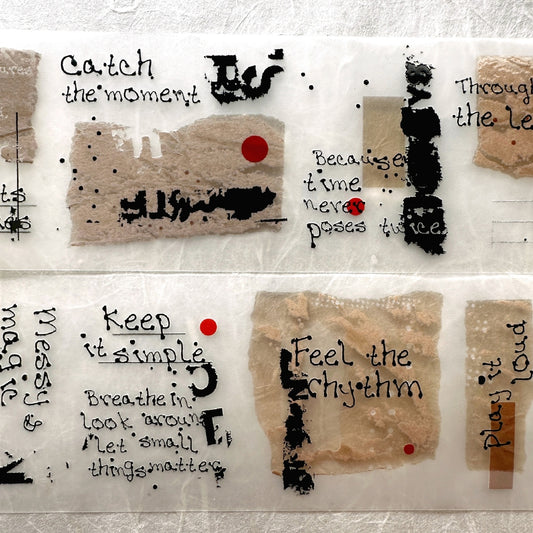 Catch
the moment
Because
time
never
poses twice
Through
the le
Messy &
magic
Keep
it simple
Breathe in
look around
let small
things matter
Feel the
rhythm
Play it
loud